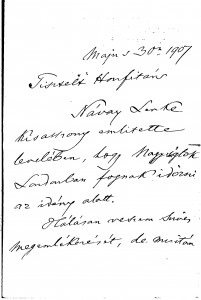 Majus 30án 1907
Tisztelt Honfitárs
Návay Lenke
kisasszony emlitette
levelében, hogy Nagyságtok
Londonban fognak időzni
az idény alatt.
Hálásan veszem Szíves
megemlékezését, de miután